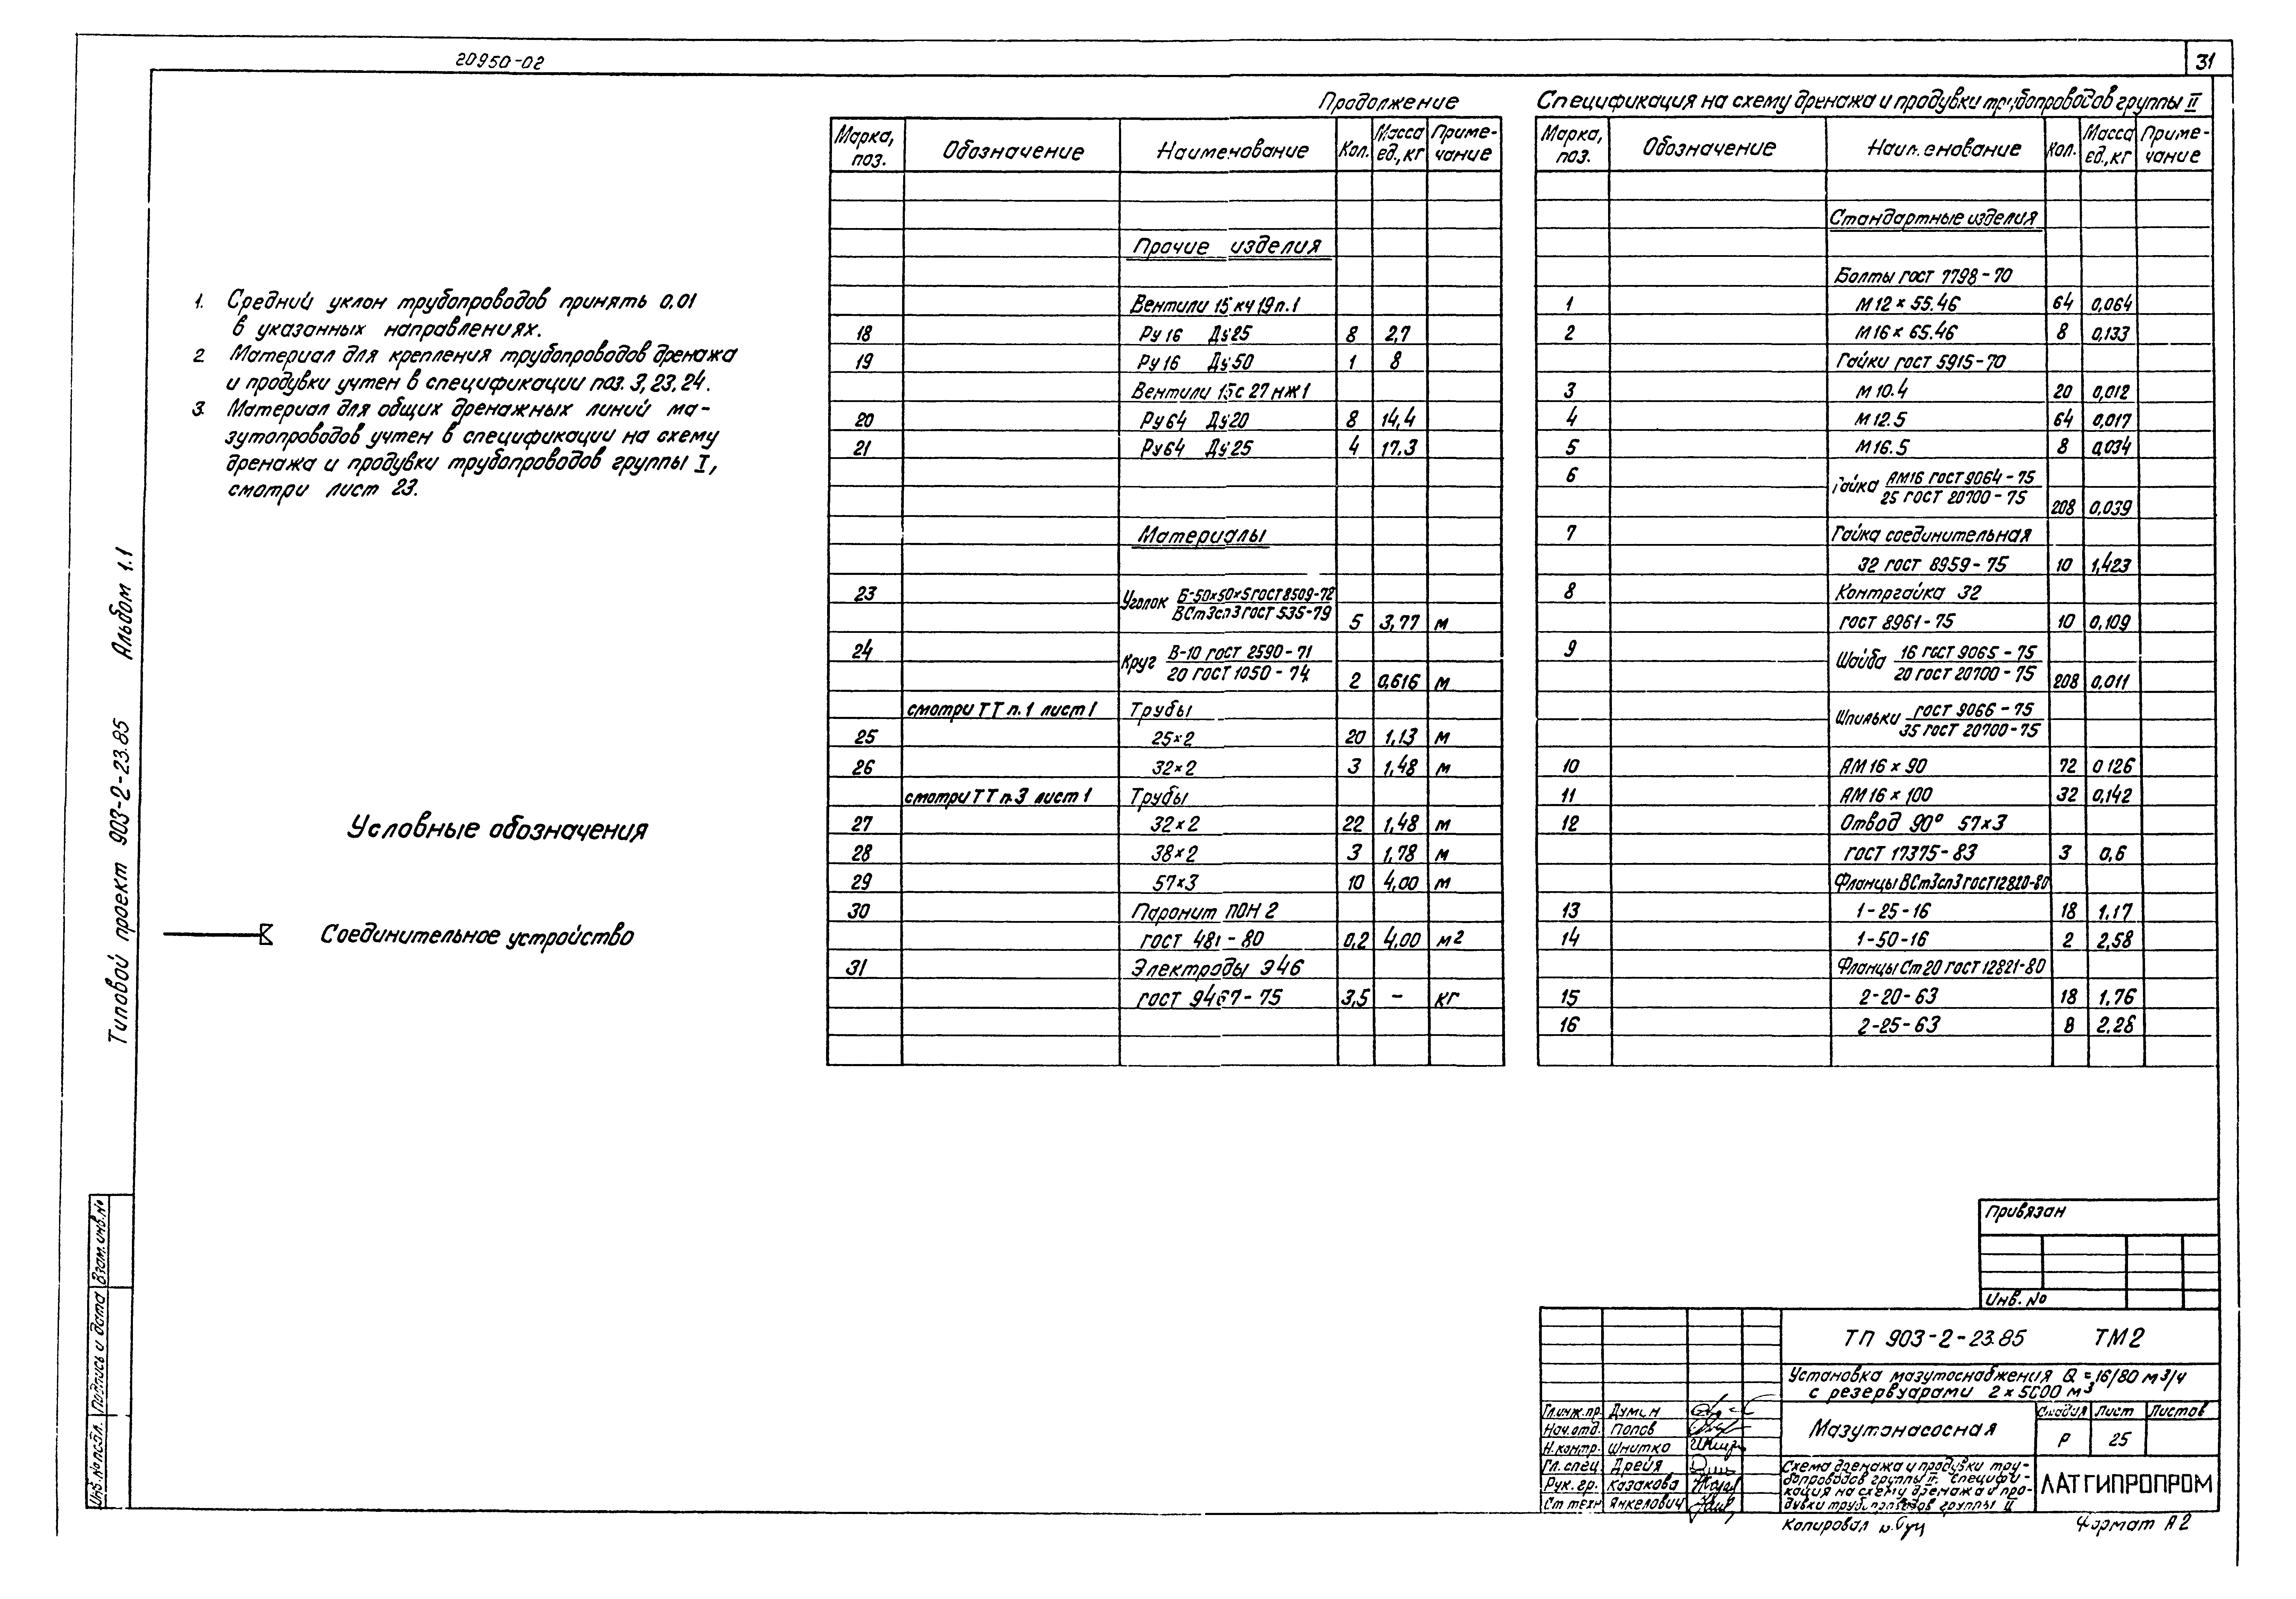 20950-02
31
Типовой проект 903-2-23.85 Альбом 1.1
1. Средний уклон трубопроводов принять 0.01
в указанных направлениях.
2 Материал для крепления трубопроводов дренажа
и продувки учтен в спецификации поз. 3, 23, 24.
3. Материал для общих дренажных линий ма-
зутопроводов учтен в спецификации на схему
дренажа и продувки трубопроводов группы I,
смотри лист 23.
Условные обозначения
Соединительное устройство
Продолжение
Марка, поз. Обозначение Наименование Кол. Масса ед., кг Приме-чание
Прочие изделия
Вентили 15кч19п.1
18 Ру16 Ду25 8 2,7
19 Ру16 Ду50 1 8
Вентили 15с27нж1
20 Ру64 Ду20 8 14,4
21 Ру64 Ду25 4 17.3
Материалы
23 Уголок Б-50х50х5 ГОСТ 8509-72
ВСт3сп3 ГОСТ 535-79 5 3,77 м
24 Круг В-10 ГОСТ 2590-71
20 ГОСТ 1050-74 2 0,616 м
смотри ТТ п.1 лист 1 Трубы
25 25×2 20 1,13 м
26 32×2 3 1,48 м
смотри ТТ п.3 лист 1 Трубы
27 32×2 22 1,48 м
28 38×2 3 1,78 м
29 57×3 10 4,00 м
30 Паронит ПОН 2
ГОСТ 481-80 0,2 4,00 м2
31 Электроды Э46
ГОСТ 9467-75 3,5 – кг
Спецификация на схему дренажа и продувки трубопроводов группы II
Марка, поз. Обозначение Наименование Кол. Масса ед., кг Приме-чание
Стандартные изделия
Болты ГОСТ 7798-70
1 М12×55.46 64 0,064
2 М16×65.46 8 0,133
Гайки ГОСТ 5915-70
3 М10.4 20 0,012
4 М12.5 64 0,017
5 М16.5 8 0,034
6 Гайка АМ16 ГОСТ 9064-75
25 ГОСТ 20700-75 208 0,039
7 Гайка соединительная
32 ГОСТ 8959-75 10 1,423
8 Контргайка 32
ГОСТ 8961-75 10 0,109
9 Шайба 16 ГОСТ 9065-75
20 ГОСТ 20700-75 208 0,011
Шпильки ГОСТ 9066-75
35 ГОСТ 20700-75
10 АМ16×90 72 0 126
11 АМ16×100 32 0,142
12 Отвод 90° 57×3
ГОСТ 17375-83 3 0,6
Фланцы ВСт3сп3 ГОСТ 12820-80
13 1-25-16 18 1,17
14 1-50-16 2 2,58
Фланцы Ст20 ГОСТ 12821-80
15 2-20-63 18 1,76
16 2-25-63 8 2,28
Привязан
Инв. №
ТП 903-2-23.85 ТМ2
Установка мазутоснабжения Q=16/80 м3/ч
с резервуарами 2×5000 м3
Гл.инж.пр. Думен
Нач.отд. Попов
Н.контр. Шнитко
Гл.спец. Дрейя
Рук.гр. Казакова
Ст техн Янкелович
Мазутонасосная
Стадия Лист Листов
Р 25
Схема дренажа и продувки тру-
бопроводов группы II. Специфи-
кация на схему дренажа и про-
дувки трубопроводов группы II
ЛАТГИПРОПРОМ
Копировал
Формат А2
Инв.№ подл. Подпись и дата Взам.инв.№